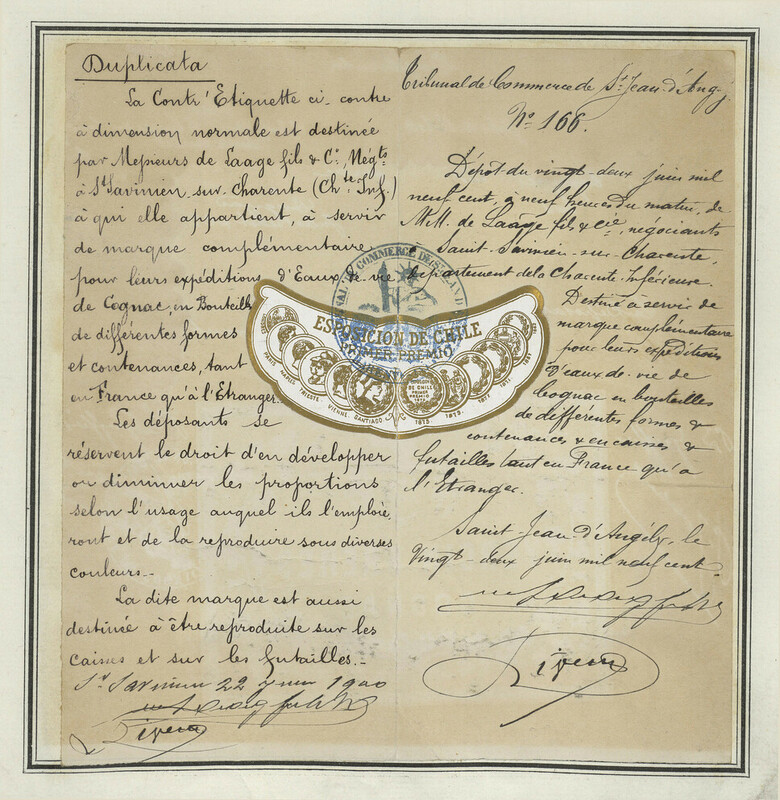 Duplicata
La Contr'Etiquette ci-contre
à dimension normale est destinée
par Messieurs de Laage fils & Cº, Négts
à St Savinien-sur-Charente (Chte Inf.)
à qui elle appartient, à servir
de marque complémentaire
pour leurs expéditions d'Eaux de vie
de Cognac, en Bouteilles
de différentes formes
et contenances, tant
en France qu'à l'Etranger.
Les déposants se
réservent le droit d'en développer
ou diminuer les proportions
selon l'usage auquel ils l'emploie-
ront et de la reproduire sous diverses
couleurs.-
La dite marque est aussi
destinée à être reproduite sur les
caisses et sur les futailles.-
St Savinien 22 juin 1900
Tribunal de Commerce de St Jean-d'Ang-y
Nº 166.
Dépôt du vingt-deux juin mil
neuf cent, à neuf heures du matin, de
M.M. de Laage fils & Cie, négociants
à Saint-Savinien-sur-Charente,
département de la Charente Inférieure.
Destiné à servir de
marque complémentaire
pour leurs expéditions
d'eaux-de-vie de
Cognac en bouteilles
de différentes formes &
contenances & en caisses &
futailles tant en France qu'à
l'Etranger.
Saint Jean d'Angély, le
Vingt-deux juin mil neuf cent.
COMMERCE DE ST JEAN D
ESPOSICION DE CHILE
PRIMER PREMIO
DE CHILE
PRIMER
PREMIO
VIENNE. SANTIAGO 1875. 1873.